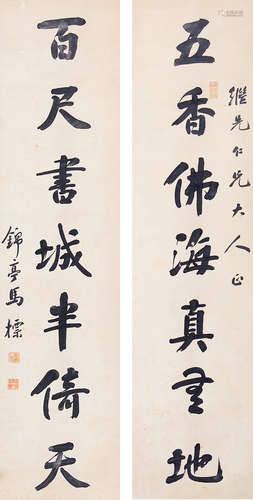 繼先仁兄大人正
五香佛海真無地
百尺書城半倚天
錦亭馬標